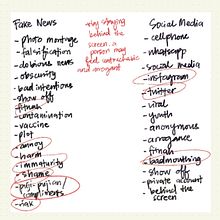 Fake News
- photo montage
- falsification
- debious news
- obscurity
- bad intentions
- show off
- fitnah
- contamination
- vaccine
- plot
- annoy
- harm
- immaturity
- shame
- puji-pujian/
compliments
- risk
- stay staying
behind the
screen. a
person may
feel untouchable
and arrogant
Social Media
- cellphone
- whatsapp
- social media
- instagram
- twitter
- viral
- youth
- anonymous
- arrogance
- fitnah
- badmouthing
- show off
- private account
- behind the
screen